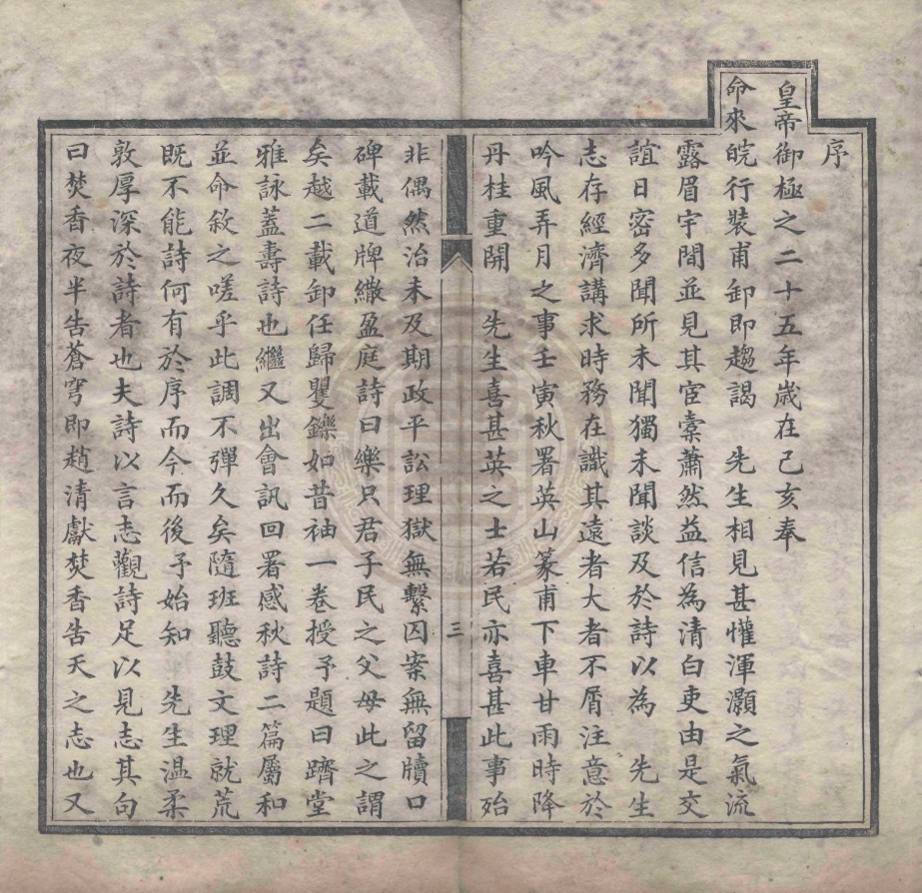 序
皇帝御極之二十五年歲在己亥奉
命來皖行裝甫卸即趨謁　先生相見甚懽渾灝之氣流
露眉宇間並見其宦橐蕭然益信為清白吏由是交
誼日密多聞所未聞獨未聞談及於詩以為　先生
志存經濟講求時務在識其遠者大者不屑注意於
吟風弄月之事壬寅秋署英山篆甫下車甘雨時降
丹桂重開　先生喜甚英之士若民亦喜甚此事殆
三
非偶然治未及期政平訟理獄無繫囚案無留牘口
碑載道牌繖盈庭詩曰樂只君子民之父母此之謂
矣越二載卸任歸矍鑠如昔袖一卷授予題曰躋堂
雅詠蓋壽詩也繼又出會訊回署感秋詩二篇屬和
並命敘之嗟乎此調不彈久矣隨班聽鼓文理就荒
既不能詩何有於序而今而後予始知　先生溫柔
敦厚深於詩者也夫詩以言志觀詩足以見志其句
曰焚香夜半告蒼穹即趙清獻焚香告天之志也又